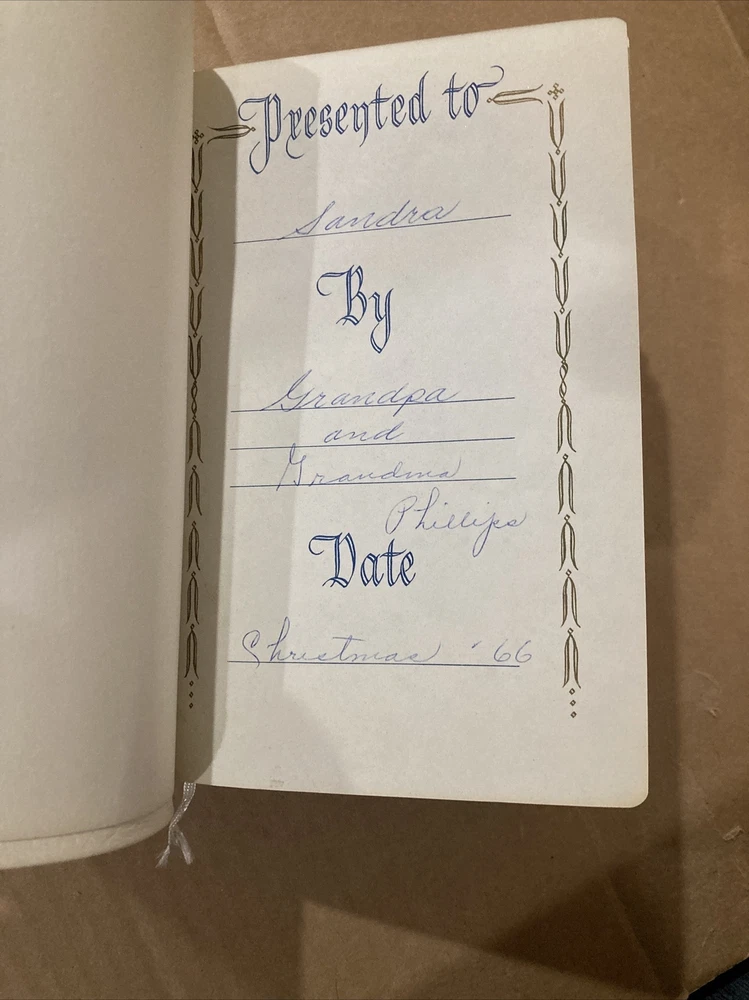 Presented to
Sandra
By
Grandpa
and
Grandma
Phillips
Date
Christmas '66